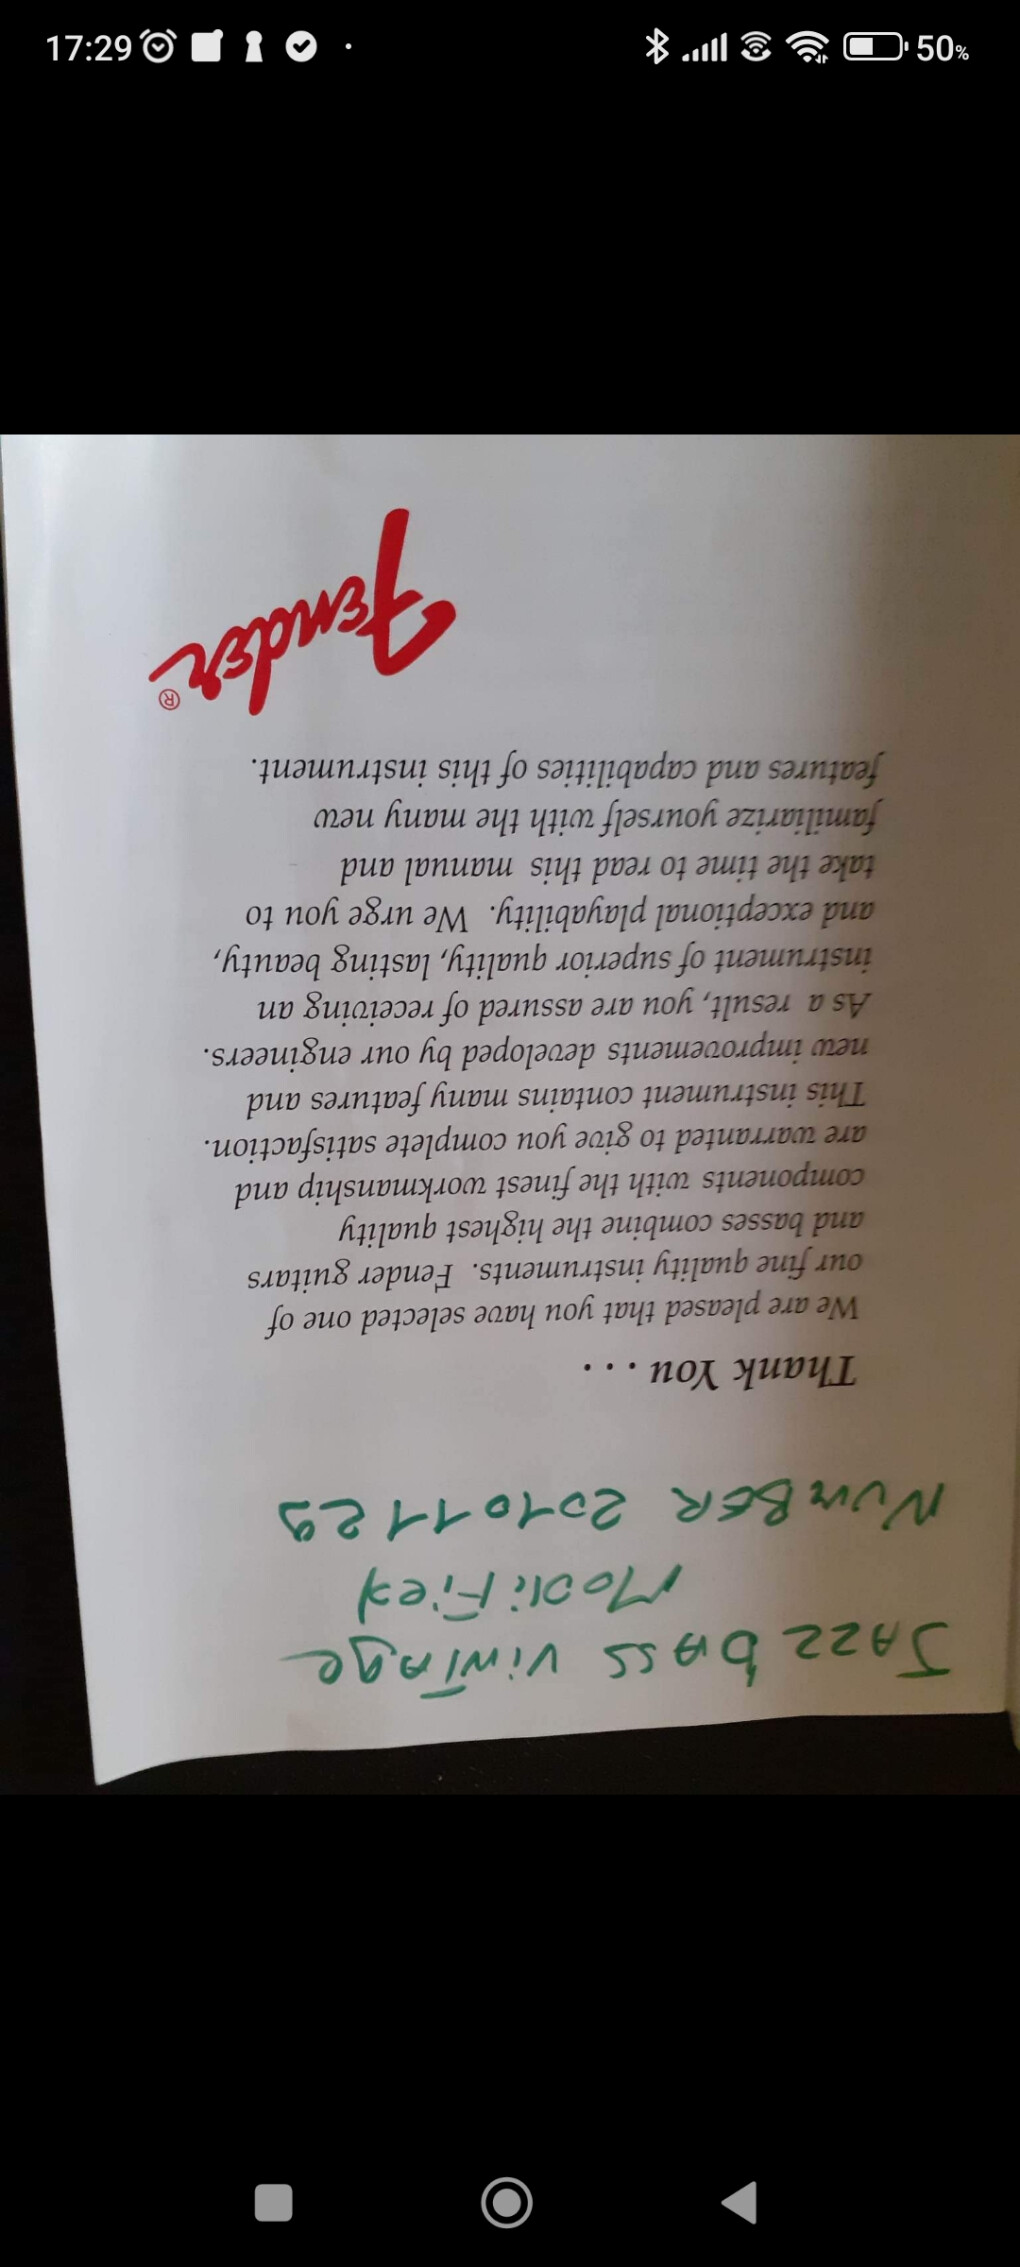 17:29
50%
JAZZ bASS VINTAge
MODIFIED
NUMBER 20101129
Thank You . . .
We are pleased that you have selected one of
our fine quality instruments. Fender guitars
and basses combine the highest quality
components with the finest workmanship and
are warranted to give you complete satisfaction.
This instrument contains many features and
new improvements developed by our engineers.
As a result, you are assured of receiving an
instrument of superior quality, lasting beauty,
and exceptional playability. We urge you to
take the time to read this manual and
familiarize yourself with the many new
features and capabilities of this instrument.
Fender®